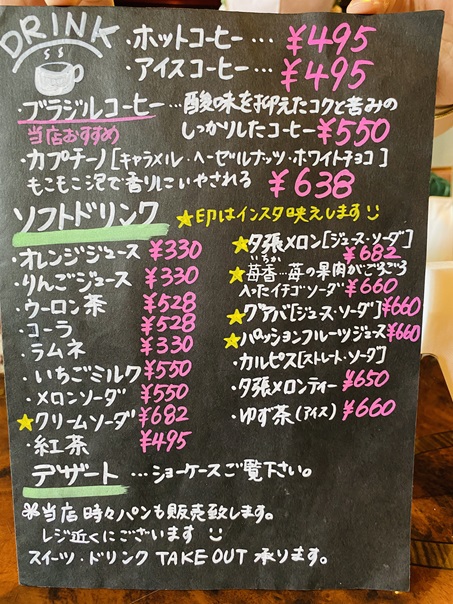 DRINK
・ホットコーヒー… ¥495
・アイスコーヒー… ¥495
・ブラジルコーヒー…酸味を抑えたコクと苦みの
当店おすすめ しっかりしたコーヒー ¥550
・カプチーノ[キャラメル・ヘーゼルナッツ・ホワイトチョコ]
もこもこ泡で香りにいやされる ¥638
ソフトドリンク ★印はインスタ映えします
・オレンジジュース ¥330
・りんごジュース ¥330
・ウーロン茶 ¥528
・コーラ ¥528
・ラムネ ¥330
・いちごミルク ¥550
・メロンソーダ ¥550
★クリームソーダ ¥682
・紅茶 ¥495
★夕張メロン[ジュース・ソーダ]
¥682
いちか
★苺香…苺の果肉がごろごろ
入ったイチゴソーダ ¥660
★グァバ[ジュース・ソーダ] ¥660
★パッションフルーツジュース ¥660
・カルピス[ストレート・ソーダ]
・夕張メロンティー ¥650
・ゆず茶(アイス) ¥660
デザート …ショーケースご覧下さい。
※当店時々パンも販売致します。
レジ近くにございます
スイーツ・ドリンク TAKE OUT 承ります。